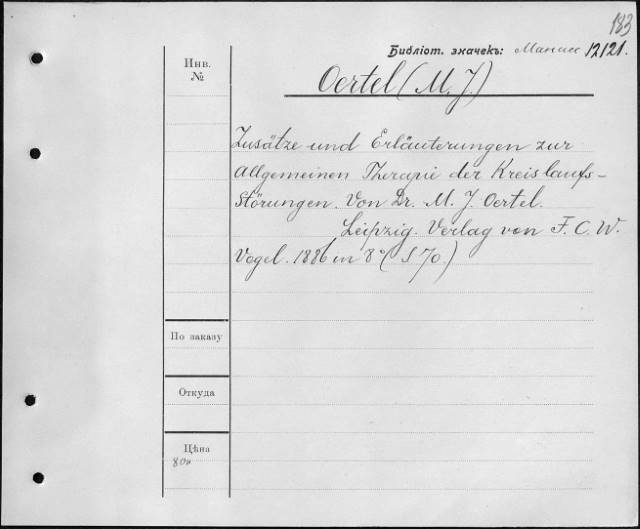 183
Библіот. значекъ: 12121.
Инв.
№
Oertel (M. J)
Zusätze und Erläuterungen zur
Allgemeinen Therapie der Kreislaufs-
Störungen. Von Dr. M. J. Oertel.
Leipzig. Verlag von F. C. W.
Vogel. 1886 in 8° (S 70.)
По заказу
Откуда
Цѣна